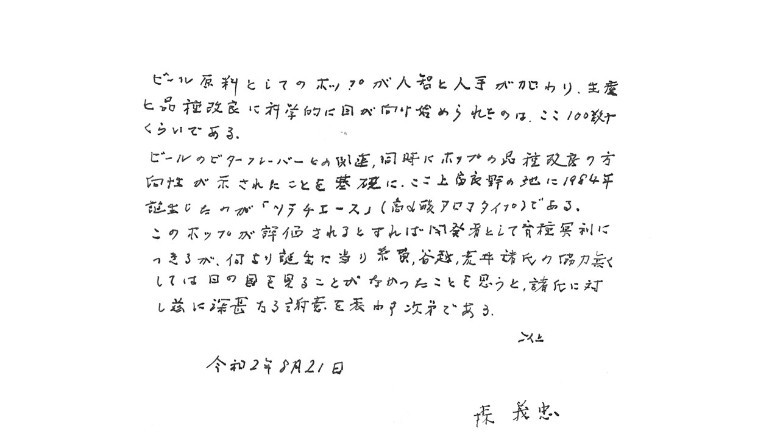 ビール原料としてのホップが人智と人手が加わり、生産
と品種改良に科学的に目が向け始められたのは、ここ100数十
くらいである。
ビールのビターフレーバーとの関連,同時にホップの品種改良の方
向性が示されたことを基礎に、ここ上富良野の地に1984年
誕生したのが「ソラチエース」(高α酸アロマタイプ)である。
このホップが評価されるとすれば開発者として育種冥利に
つきるが、何より誕生に当り 谷越,荒井諸氏の協力無く
しては日の目を見ることがなかったことを思うと、諸氏に対
し、茲に深甚なる謝意を表わす次第である.
以上
令和2年8月21日
義忠